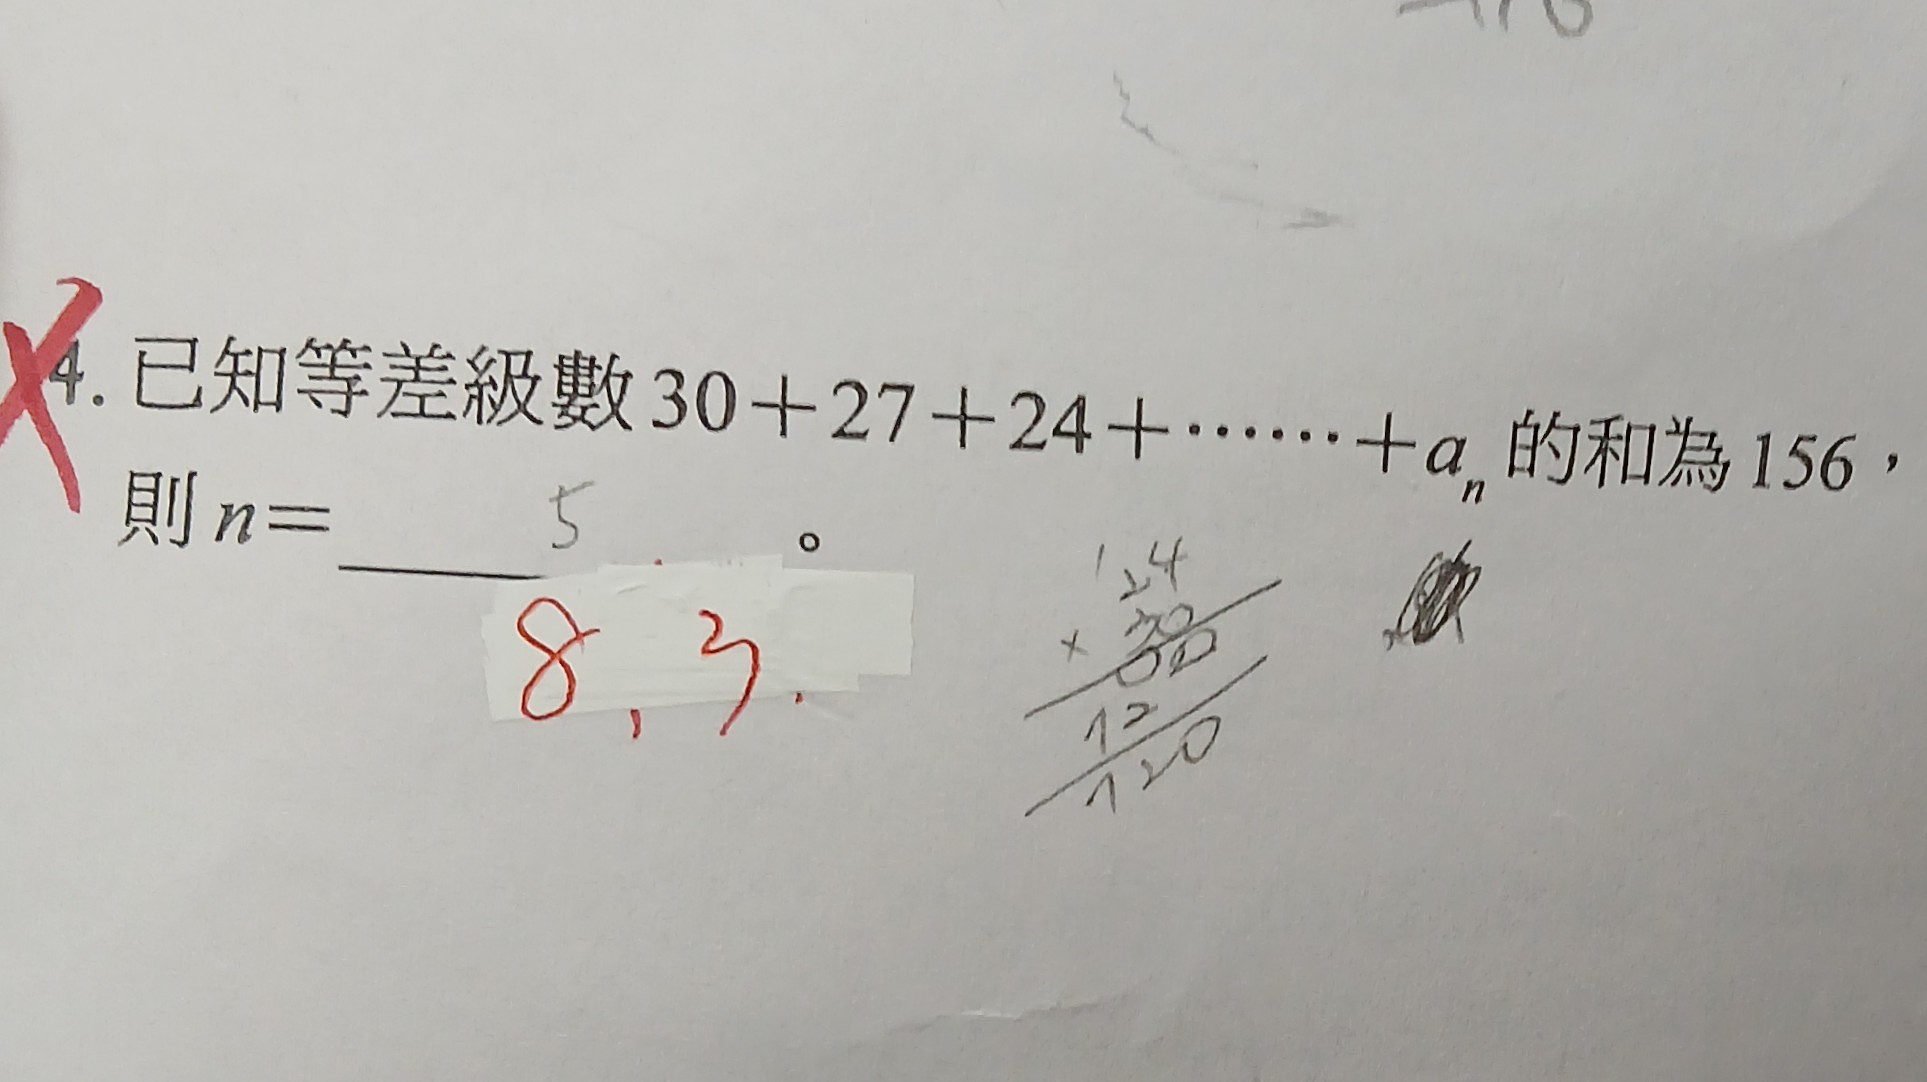 4. 已知等差級數30＋27＋24＋……＋aₙ 的和為156，
則 n＝ 5 。
8, 3.
24
× 30
00
12
120